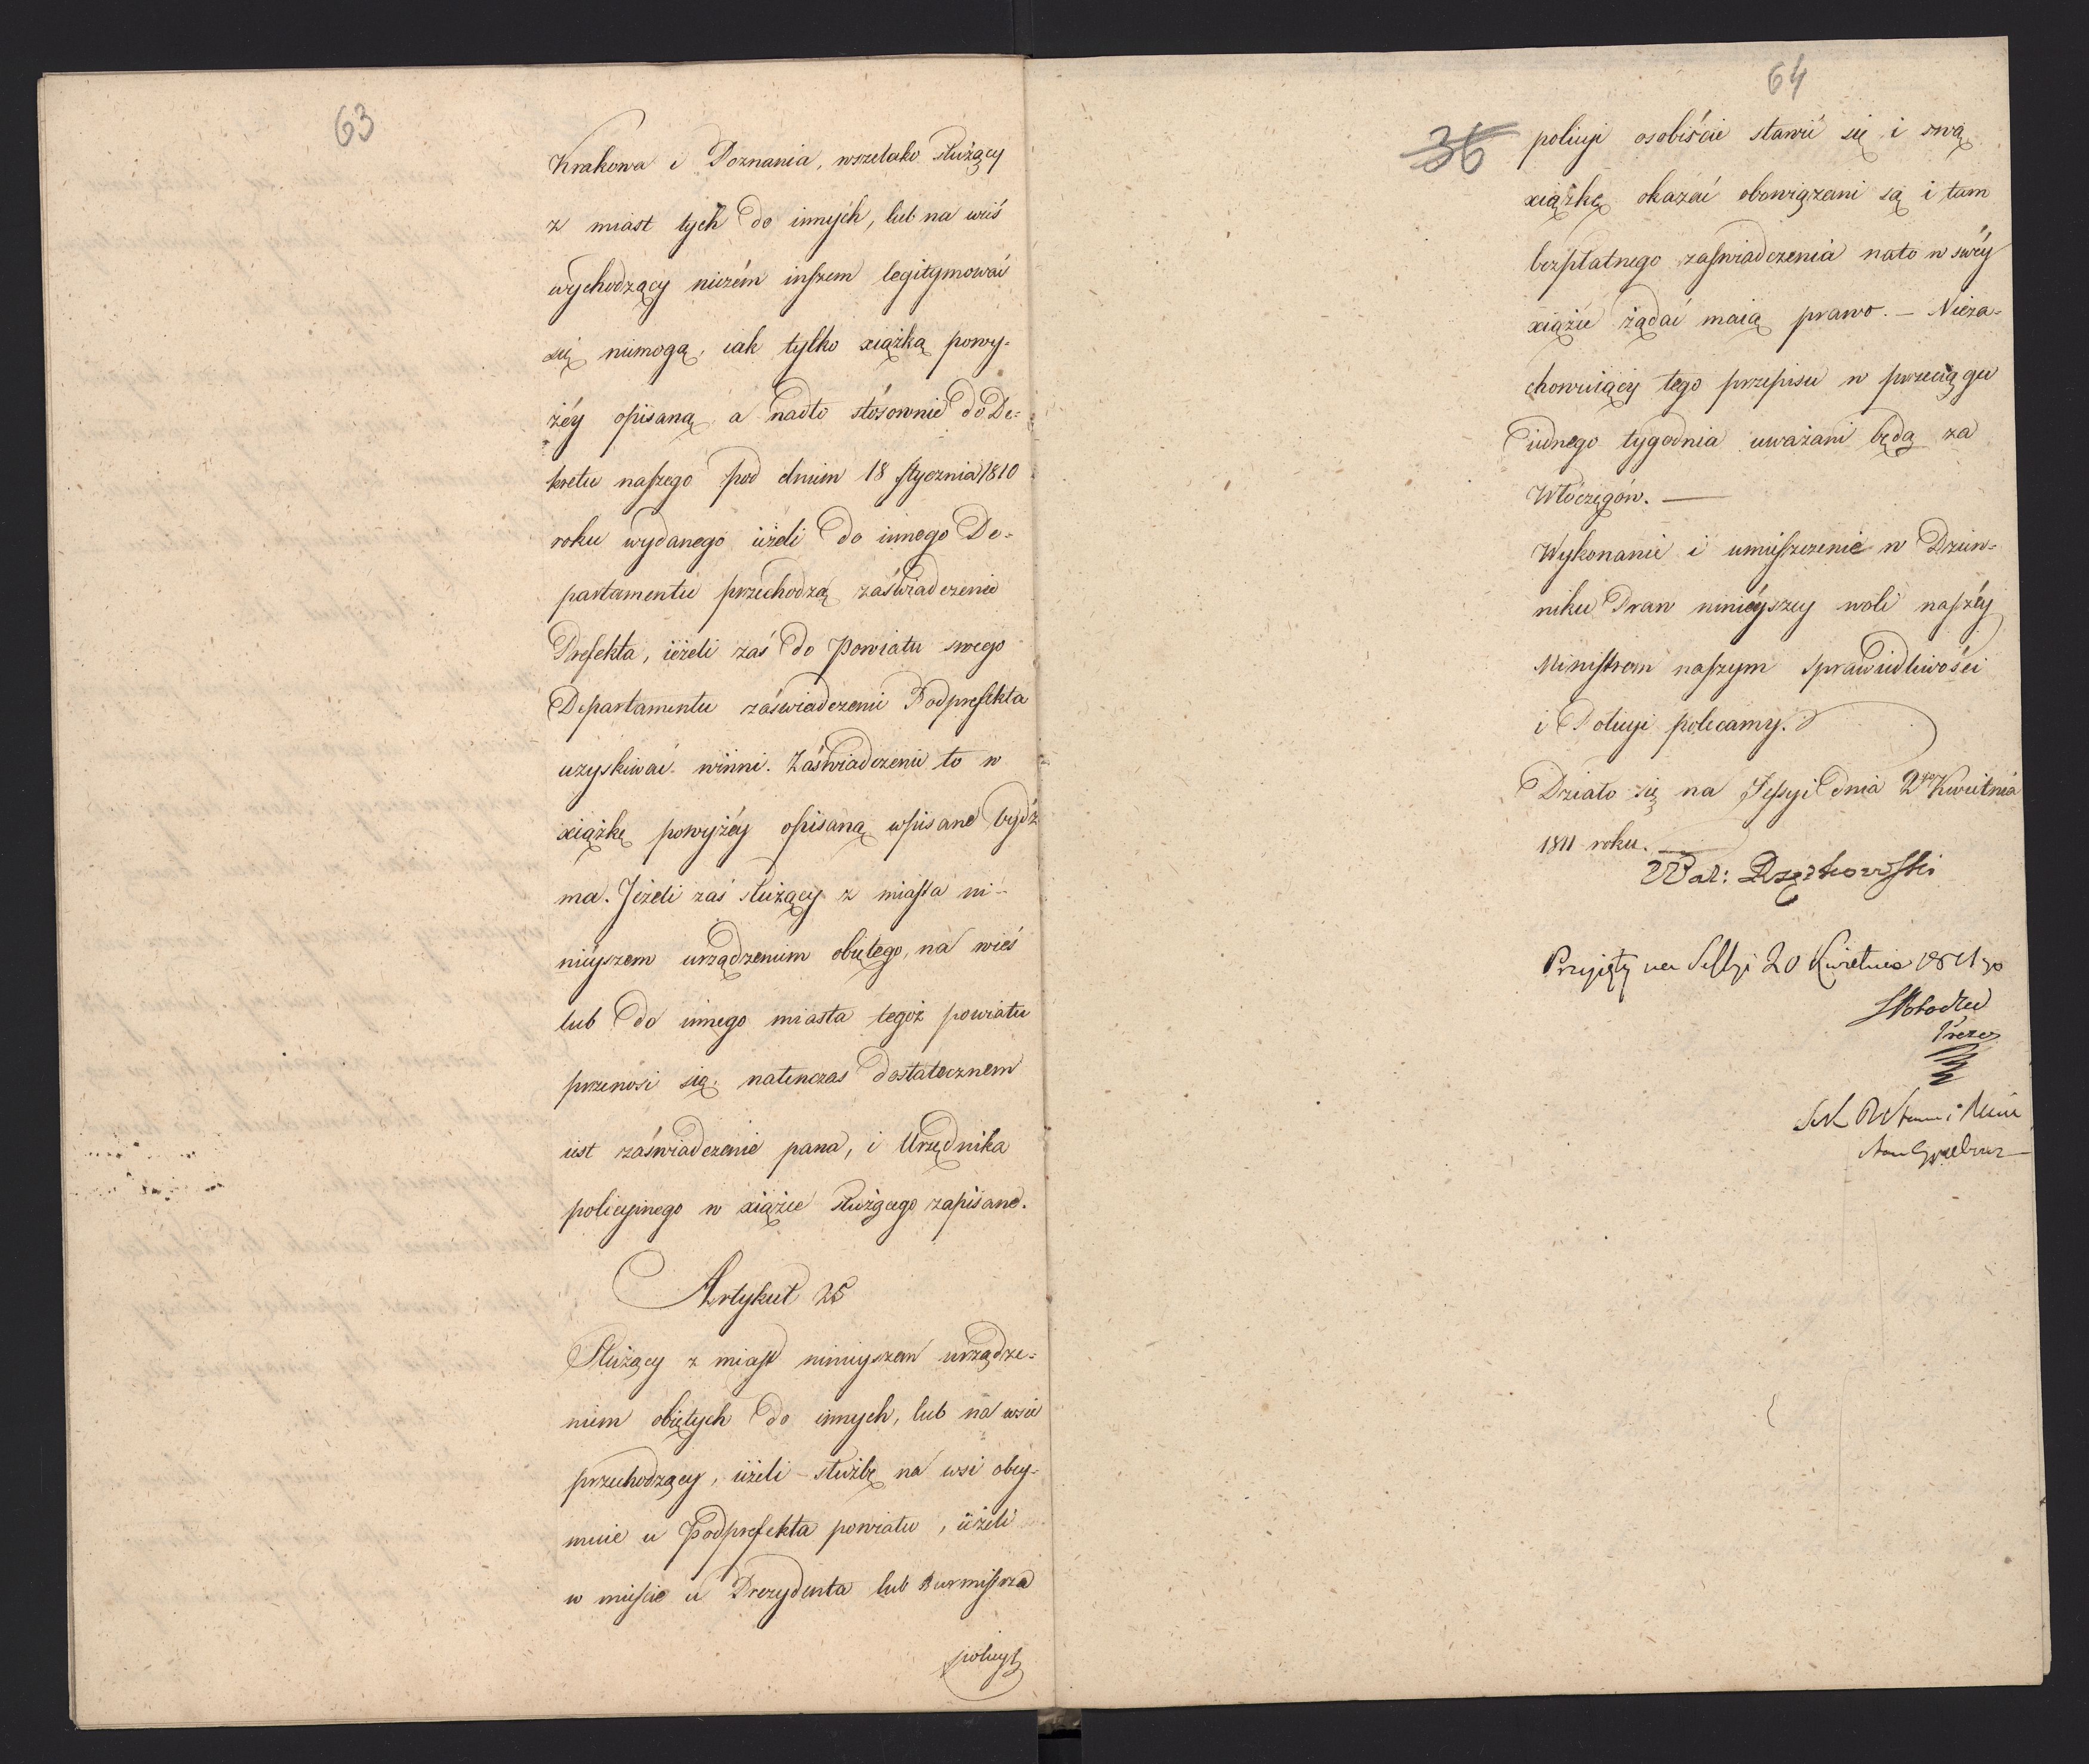 63
Krakowa i Poznania, wszelako służący
z miast tych do innych, lub na wieś
wychodzący niczém inszem legitymować
się niemogą, iak tylko xiążką powy-
żéy opisaną, a nadto stósownie do De-
kretu naszego pod dniem 18 stycznia 1810
roku wydanego ieżeli do innego De-
partamentu przechodzą zaświadczenie
Prefekta, ieżeli zaś do Powiatu swego
Departamentu zaświadczenie Podprefekta
uzyskiwać winni. Zaświadczenie to w
xiążkę powyżéy opisaną wpisane bydź
ma. Jeżeli zaś służący z miasta ni-
nieyszem urządzeniem obiętego, na wieś
lub do innego miasta tegoż powiatu
przenosi się, natenczas dostatecznem
iest zaświadczenie pana, i Urzędnika
policyinego w xiążce służącego zapisane.
Artykuł 25
Służący z miast ninieyszem urządze-
niem obiętych do innych, lub na wsie
przechodzący, ieżeli służbę na wsi obey-
muie u Podprefekta powiatu, ieżeli
w mieście u Prezydenta lub Burmistrza
policyi
64
36
policyi osobiście stawić się i swą
xiążkę okazać obowiązani są i tam
bezpłatnego zaświadczenia na to w swéy
xiążce żądać maią prawo. — Nieza-
chowuiący tego przepisu w przeciągu
iednego tygodnia uważani będą za
Włóczęgów. —
Wykonanie i umieszczenie w Dzien-
niku Praw ninieyszey woli naszéy
Ministrom naszym Sprawiedliwości
i Policyi polecamy.
Działo się na Sessyi dnia 2go Kwietnia
1811 roku.
Wal: Rzętkowski
Przyięty na Sessyi 20 Kwietnia 1811 go
SPotocki
Prezes